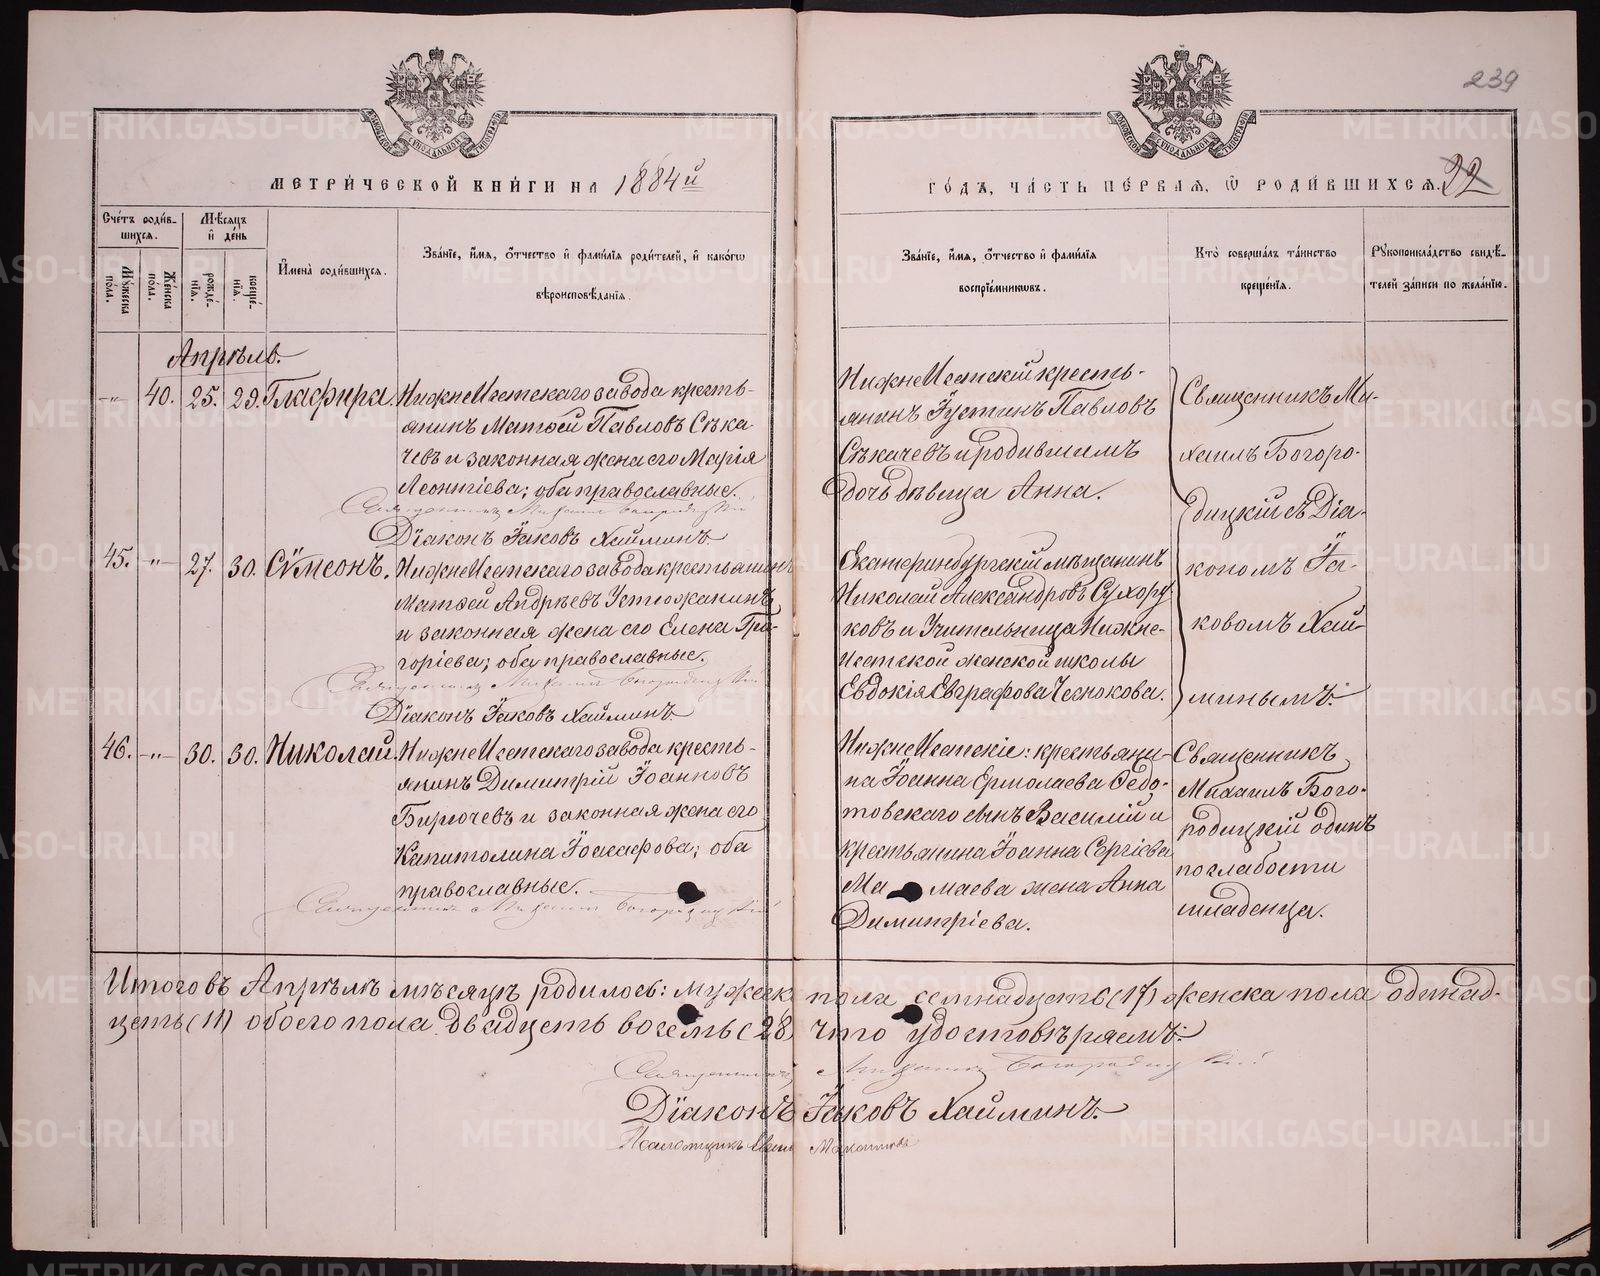 239
МЕТРИ́ЧЕСКОЙ КНИ́ГИ НА 1884й
ГО́ДЪ, ЧА́СТЬ ПЕ́РВАЯ, Ѡ РОДИ́ВШИХСЯ. 92
Сче́тъ роди́в-
шихся.
Мѣ́сяцъ
и де́нь
Мꙋжеска
по́ла.
Же́нска
по́ла.
рожде́-
нїя.
креще́-
нїя.
И́мена роди́вшихся.
Зва́нїе, и́мя, о́тчество и фами́лїя роди́телей, и како́гѡ
вѣроисповѣ́данїя.
Зва́нїе, и́мя, о́тчество и фами́лїя
воспрїе́мникѡвъ.
Кто̀ соверша́лъ та́инство
креще́нїя.
Рꙋкоприкла́дство свидѣ́-
телей за́писи по жела́нїю.
Апрѣль.
-"- 40. 25. 29. Глафира.
НижнеИсетскаго завода кресть-
янинъ Матѳей Павловъ Сѣка-
чевъ и законная жена его Марія
Леонтіева; оба православные.
Священникъ Михаилъ Богородицкій
Діаконъ Іаковъ Хайминъ.
НижнеИсетскій кресть-
янинъ Іустинъ Павловъ
Сѣкачевъ и родившимъ
дочь дѣвица Анна.
Священникъ Ми-
хаилъ Богоро-
дицкій съ Діа-
кономъ Іа-
ковомъ Хай-
минымъ.
45. -"- 27. 30. Сѵмеонъ.
НижнеИсетскаго завода крестьянинъ
Матѳей Андрѣевъ Устюжанинъ
и законная жена его Елена Гри-
горіева; оба православные.
Священникъ Михаилъ Богородицкій
Діаконъ Іаковъ Хайминъ
Екатеринбургскій мѣщанинъ
Николай Александровъ Сухору
ковъ и Учительница Нижне-
Исетской женской школы
Евдокія Евграфова Чеснокова.
46. -"- 30. 30. Николай.
НижнеИсетскаго завода кресть-
янинъ Димитрій Іоанновъ
Бирючевъ и законная жена его
Капитолина Іоасафова; оба
православные.
Священникъ Михаилъ Богородицкій
НижнеИсетскіе: крестьяни-
на Іоанна Ермолаева Ѳедо-
товскаго сынъ Василій и
крестьянина Іоанна Сергіева
жена Анна
Димитріева.
Священникъ
Михаилъ Бого-
родицкій одинъ
по слабости
младенца.
Итого въ Апрѣлѣ мѣсяцѣ родилось: мужеск пола семнадцать (17) женска пола одинад-
цать (11) обоего пола двадцать восемь (28) что удостовѣряемъ:
Священникъ Михаилъ Богородицкій
Діаконъ Іаковъ Хайминъ.
Псаломщикъ
МОСКОВСКОЙ СѴНОДАЛЬНОЙ ТИПОГРАФІИ
МОСКОВСКОЙ СѴНОДАЛЬНОЙ ТИПОГРАФІИ
METRIKI.GASO-URAL.RU